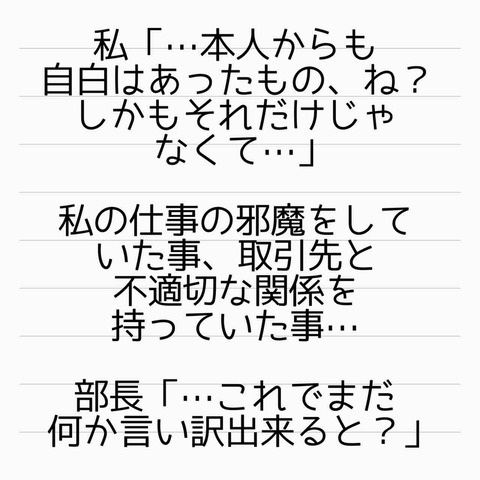 私「…本人からも
自白はあったもの、ね？
しかもそれだけじゃ
なくて…」
私の仕事の邪魔をして
いた事、取引先と
不適切な関係を
持っていた事…
部長「…これでまだ
何か言い訳出来ると？」